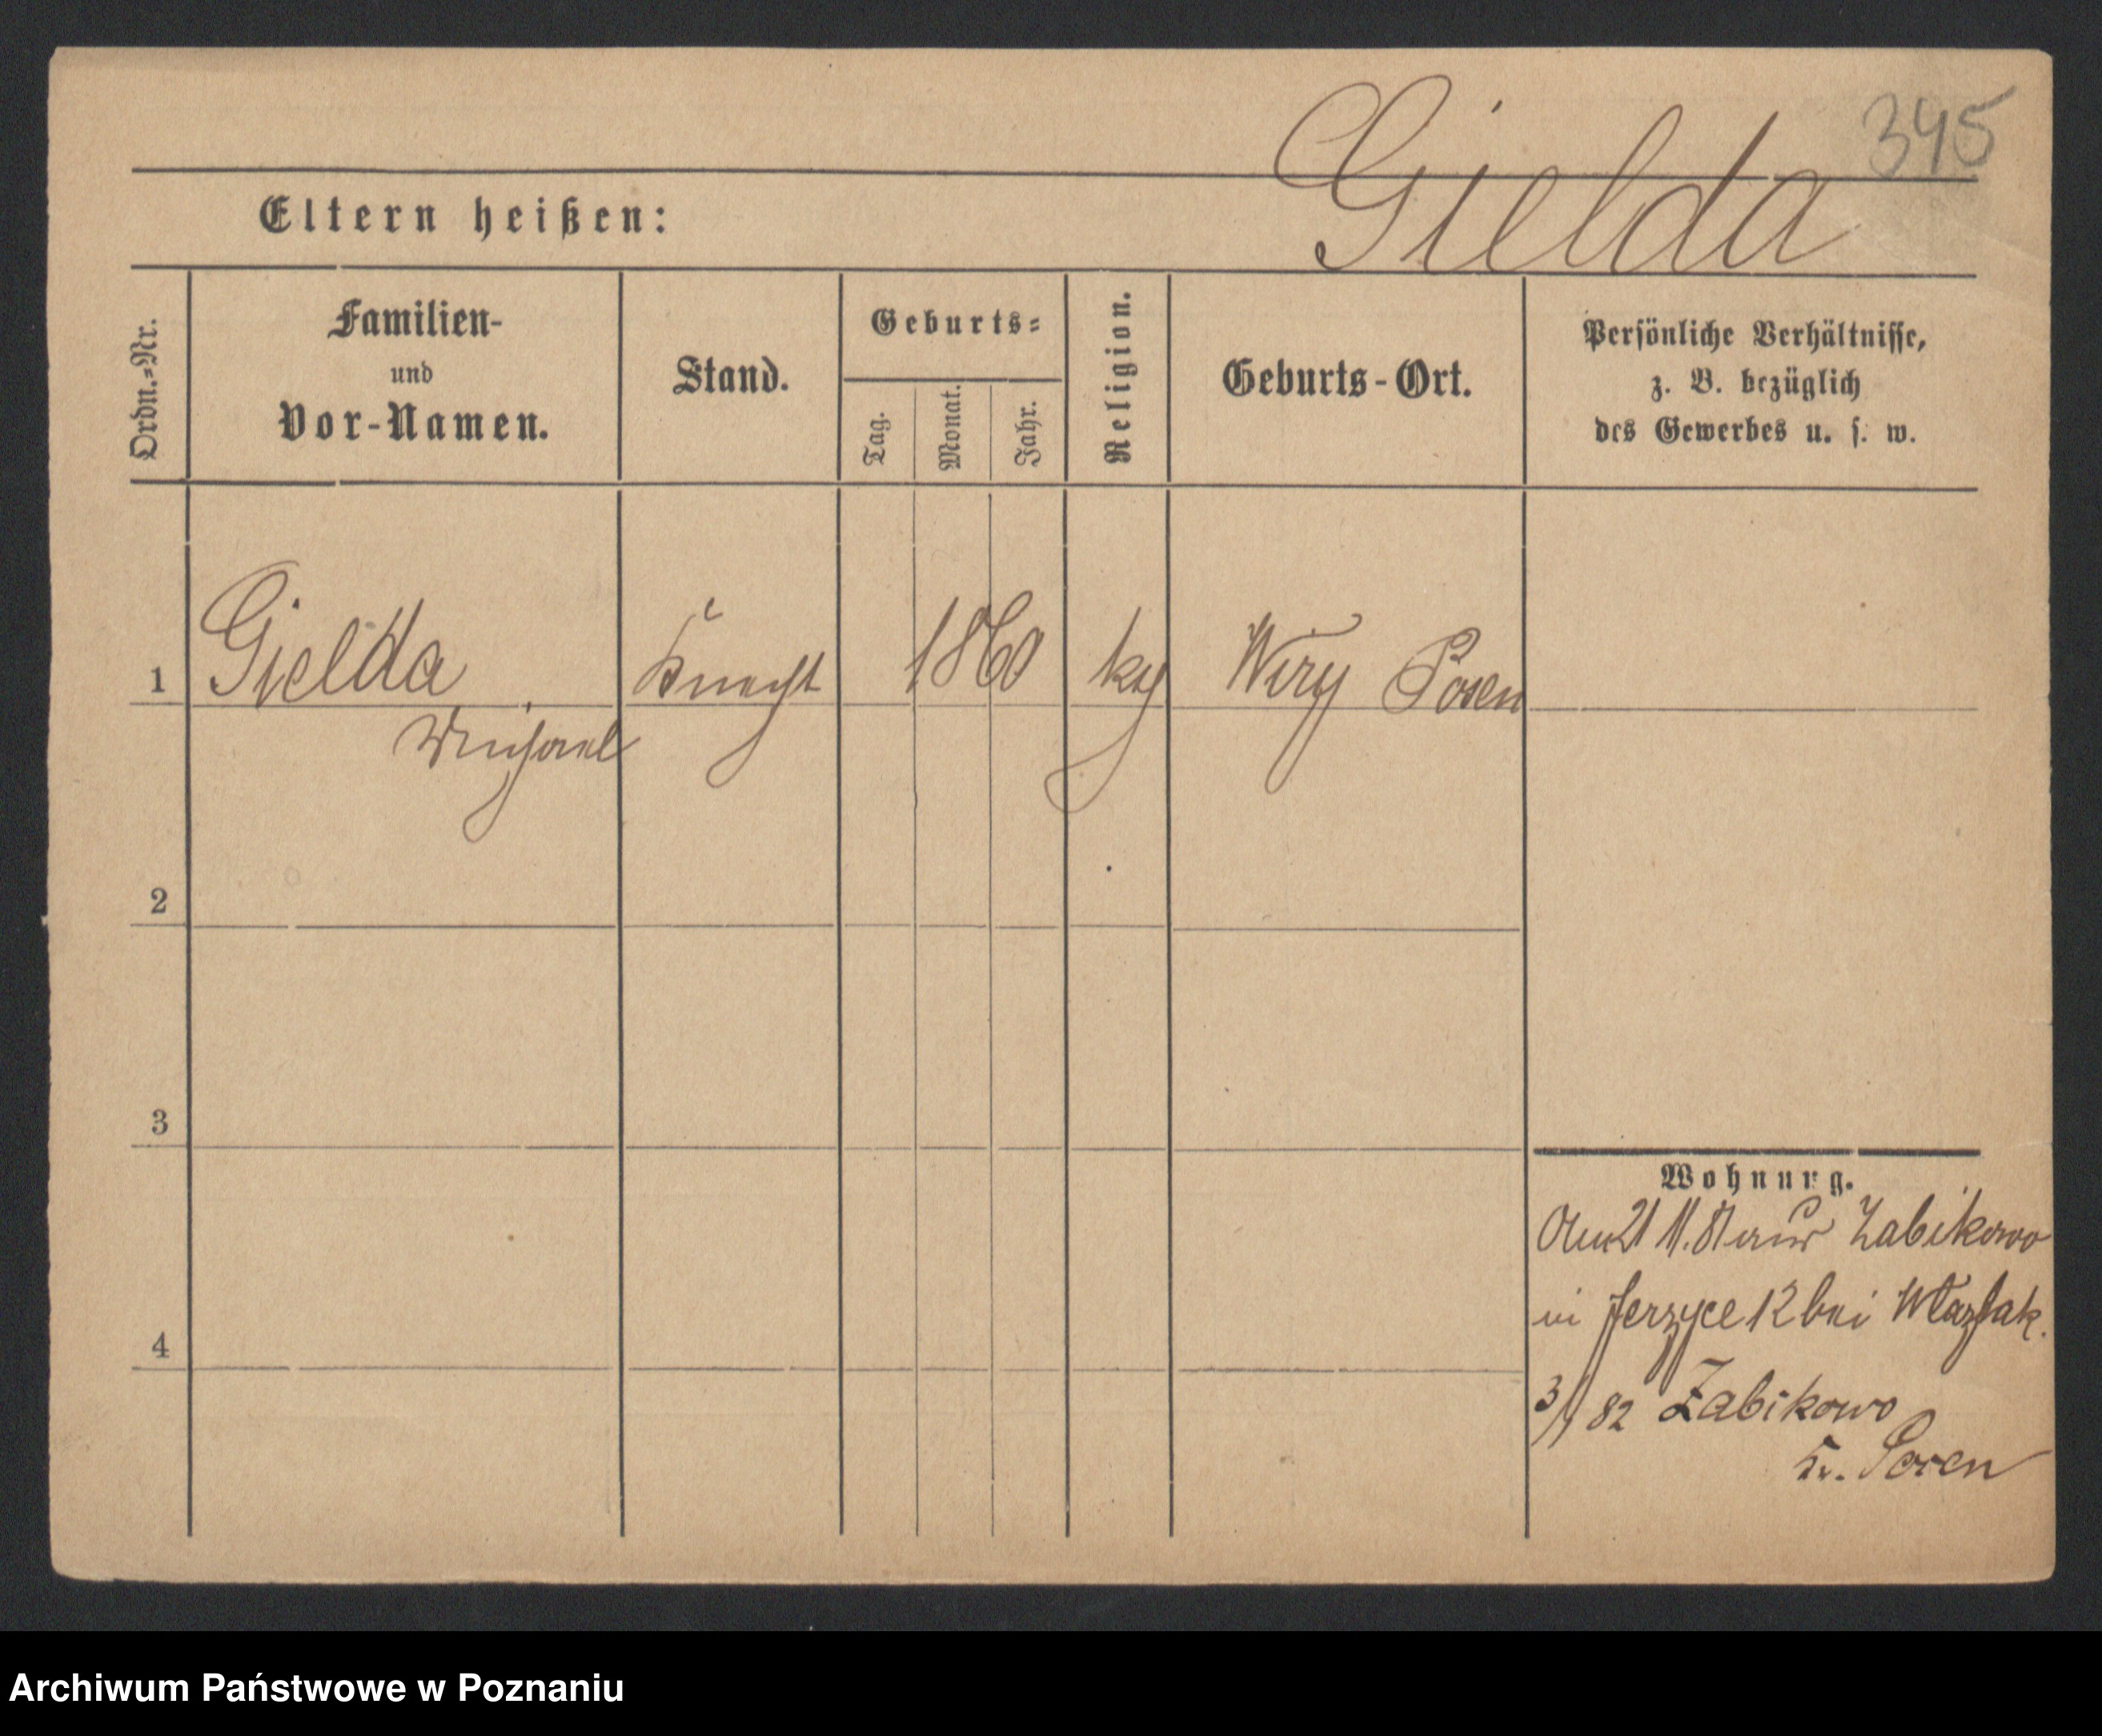 345
Gielda
Eltern heißen:
Ordn.-Nr.
Familien-
und
Vor-Namen.
Stand.
Geburts-
Tag.
Monat.
Jahr.
Religion.
Geburts-Ort.
Persönliche Verhältnisse,
z. B. bezüglich
des Gewerbes u. s. w.
1 Gielda Knecht 1860 Wiry Posen
Michael
2
3
4
Wohnung.
Am 21 11. 81 aus Zabikowo
in Jerzyce 12 bei
3/1 82 Zabikowo
Kr. Posen
Archiwum Państwowe w Poznaniu